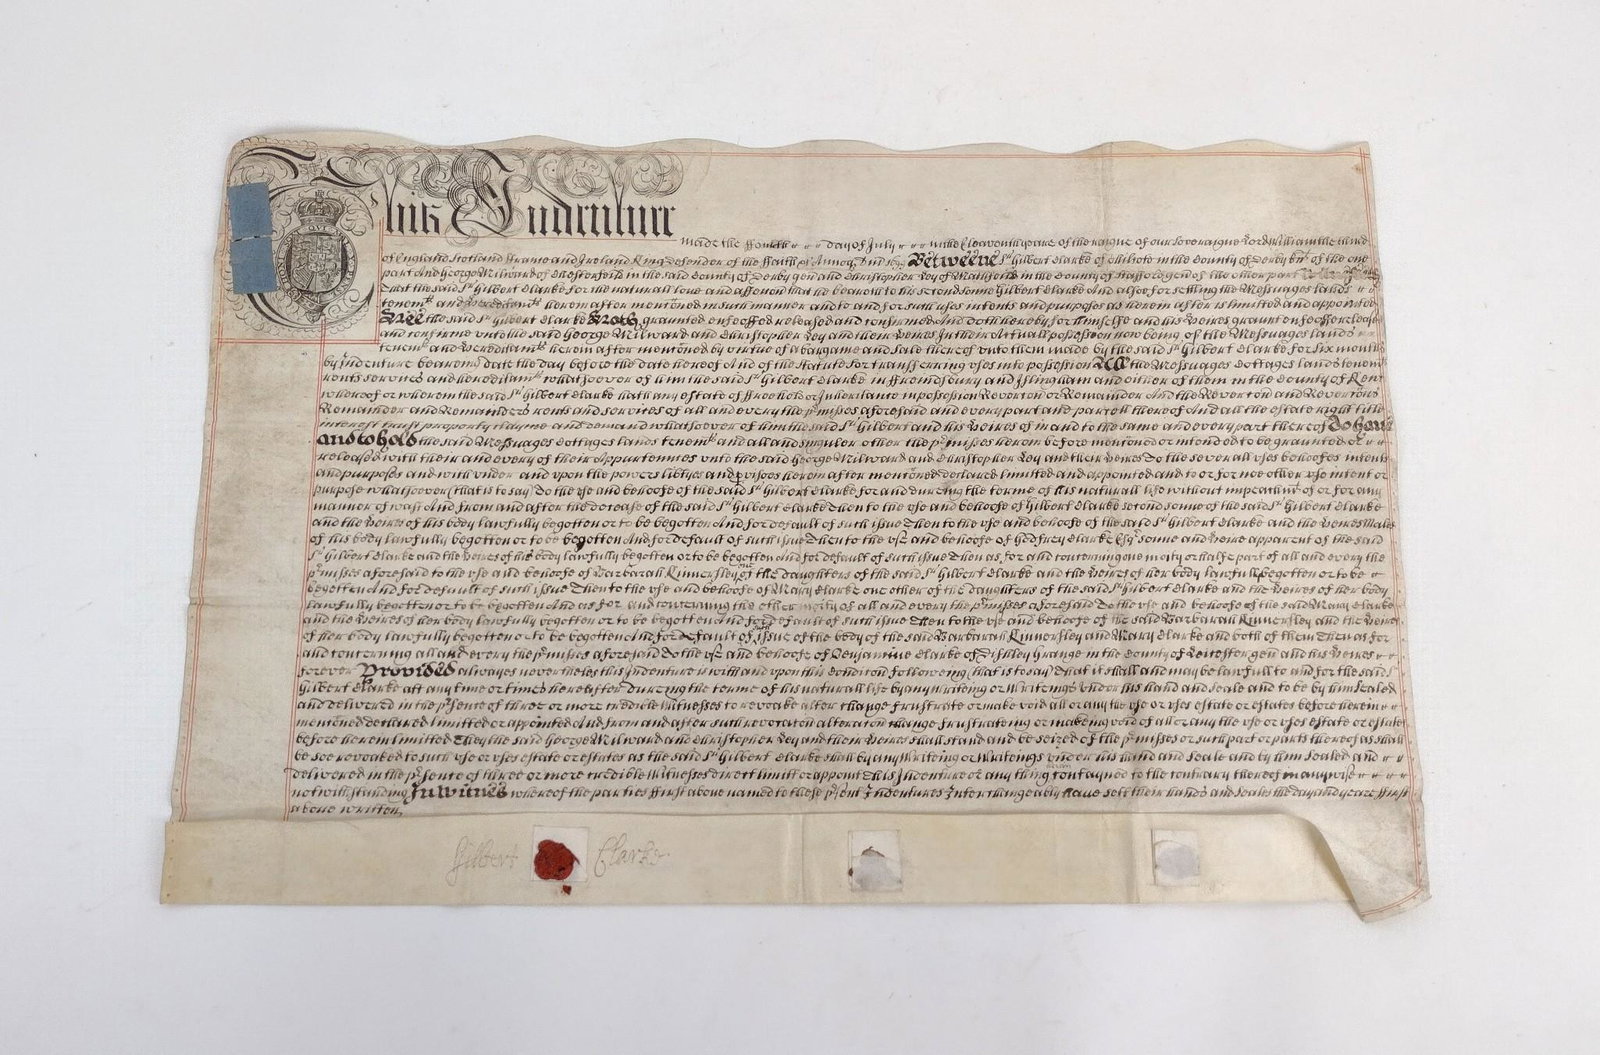 This Indenture
made the ffourth day of July in the Eleaventh yeare of the reigne of our Soveraigne Lord William the third
of England Scotland ffrance and Ireland King defender of the ffaith &c Annoq Dni 1699 Betweene Sr Gilbert Clarke of Chilcote in the County of Derby knt of the one
part And George Milward of Chesterfeild in the said County of Derby gen and Christopher Ley of in the County of Stafford gen of the other part
That the said Sr Gilbert Clarke for the naturall love and affection that he beareth to his second sonne Gilbert Clarke And alsoe for setling the Messuages lands
tenemts and hereditamts herein after mentioned in such manner and to and for such uses intents and purposes as herein after is limitted and appointed
Hee the said Sr Gilbert Clarke Hath graunted enfeoffed released and confirmed And doth hereby for himselfe and his heires graunt enfeoffe release
and confirme unto the said George Milward and Christopher Ley and their heires In their Actuall possession now being of the Messuages lands
tenemts and hereditamts herein after mentioned by virtue of a bargaine and sale thereof unto them made by the said Sr Gilbert Clarke for six months
by Indenture bearing date the day before the date hereof And of the Statute for transferring uses into possession All the Messuages Cottages lands tenemts
rents services and hereditamts whatsoever of him the said Sr Gilbert Clarke in ffrindsbury and Islingham and either of them in the County of Kent
whereof or wherein the said Sr Gilbert Clarke hath any estate of ffreehold or Inheritance in possession Reverton or Remainder And the Reverton and Revertons
Remainder and Remainders rents and services of all and every the pmisses aforesaid and every part and parcell thereof And all the estate right title
interest trust property clayme and demand whatsoever of him the said Sr Gilbert and his heires of in and to the same and every part thereof To have
and to hold the said Messuages Cottages lands tenemts and all and singuler other the pmisses herein before mentoned or intended to be graunted or
released with their and every of their Appurtennces unto the said George Milward and Christopher Ley and their heires To the severall uses behoofes intents
and purposes and with under and upon the powers and pvisoes herein after mentoned declared limitted and appointed and to or for noe other use intent or
purpose whatsoever (that is to say) To the use and behoofe of the said Sr Gilbert Clarke for and dureing the terme of his naturall life without impeachmt of or for any
manner of wast And from and after the decease of the said Sr Gilbert Clarke Then to the use and behoofe of Gilbert Clarke second sonne of the said Sr Gilbert Clarke
and the heires of his body lawfully begotten or to be begotten And for default of such issue Then to the use and behoofe of the said Sr Gilbert Clarke and the heires Males
of his body lawfully begotten or to be begotten And for default of such issue Then to the use and behoofe of Godfrey Clarke Esqr sonne and heire apparent of the said
Sr Gilbert Clarke and the heires of his body lawfully begotten or to be begotten And for default of such issue Then as for and concerning one moity or halfe part of all and every the
pmisses aforesaid to the use and behoofe of Barbarah Kinnersley one of the daughters of the said Sr Gilbert Clarke and the heires of her body lawfully begotten or to be
begotten And for default of such issue Then to the use and behoofe of Mary Clarke one other of the daughters of the said Sr Gilbert Clarke and the heires of her body
lawfully begotten or to be begotten And as for and concerning the other moity of all and every the pmisses aforesaid To the use and behoofe of the said Mary Clarke
and the heires of her body lawfully begotten or to be begotten And for default of such issue Then to the use and behoofe of the said Barbarah Kinnersley and the heires
of her body lawfully begotten or to be begotten And for default of such issue of the body of the said Barbarah Kinnersley and Mary Clarke and both of them Then as for
and concerning all and every the pmisses aforesaid To the use and behoofe of Benjamine Clarke of Dishley Grange in the County of Leicester gen and his heires
forever Provided alwayes neverthelesse this Indenture is with and upon this Condition following (that is to say) That it shall and may be lawfull to and for the said Sr
Gilbert Clarke att any time or times hereafter dureing the terme of his naturall life by any Writeing or Writeings under his hand and seale and to be by him sealed
and delivered in the psence of three or more credible Witnesses to revoake alter change frustrate or make void all or any the use or uses estate or estates before herein
mentoned declared limitted or appointed And from and after such revocaton alteraton change frustrateing or makeing void of all or any the use or uses estate or estates
before herein limitted They the said George Milward and Christopher Ley and their heires shall stand and be seized of the pmisses or such part or parts thereof as shall
be soe revoaked to such use or uses estate or estates as the said Sr Gilbert Clarke shall by any Writeing or Writeings under his hand and seale and by him sealed and
delivered in the psence of three or more credible Witnesses direct limitt or appoint This Indenture or any thing contayned to the contrary thereof in any wise
notwithstanding In Witnes whereof the parties ffirst above named to these psent Indentures Interchangeably have sett their hands and seales the day and yeare ffirst
above written
Gilbert Clarke